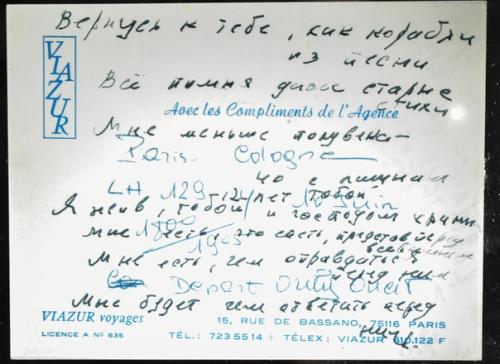 Вернусь к тебе, как корабли
из песни
Всё помня даже старые
стихи
VIAZUR
Avec les Compliments de l'Agence
Мне меньше полувека —
Paris. Cologne
LH 129 - 12/
лет тобой
Я жив, тобой и господом храним
Мне есть
представ перед
всевышним
Мне есть, чем оправдаться
перед ним
Depart Orly Ouest
Мне будет чем ответить перед
ним.
VIAZUR voyages
15, RUE DE BASSANO, 75116 PARIS
LICENCE A N° 635
TÉL.: 723 55 14 + TÉLEX: VIAZUR 610.122 F